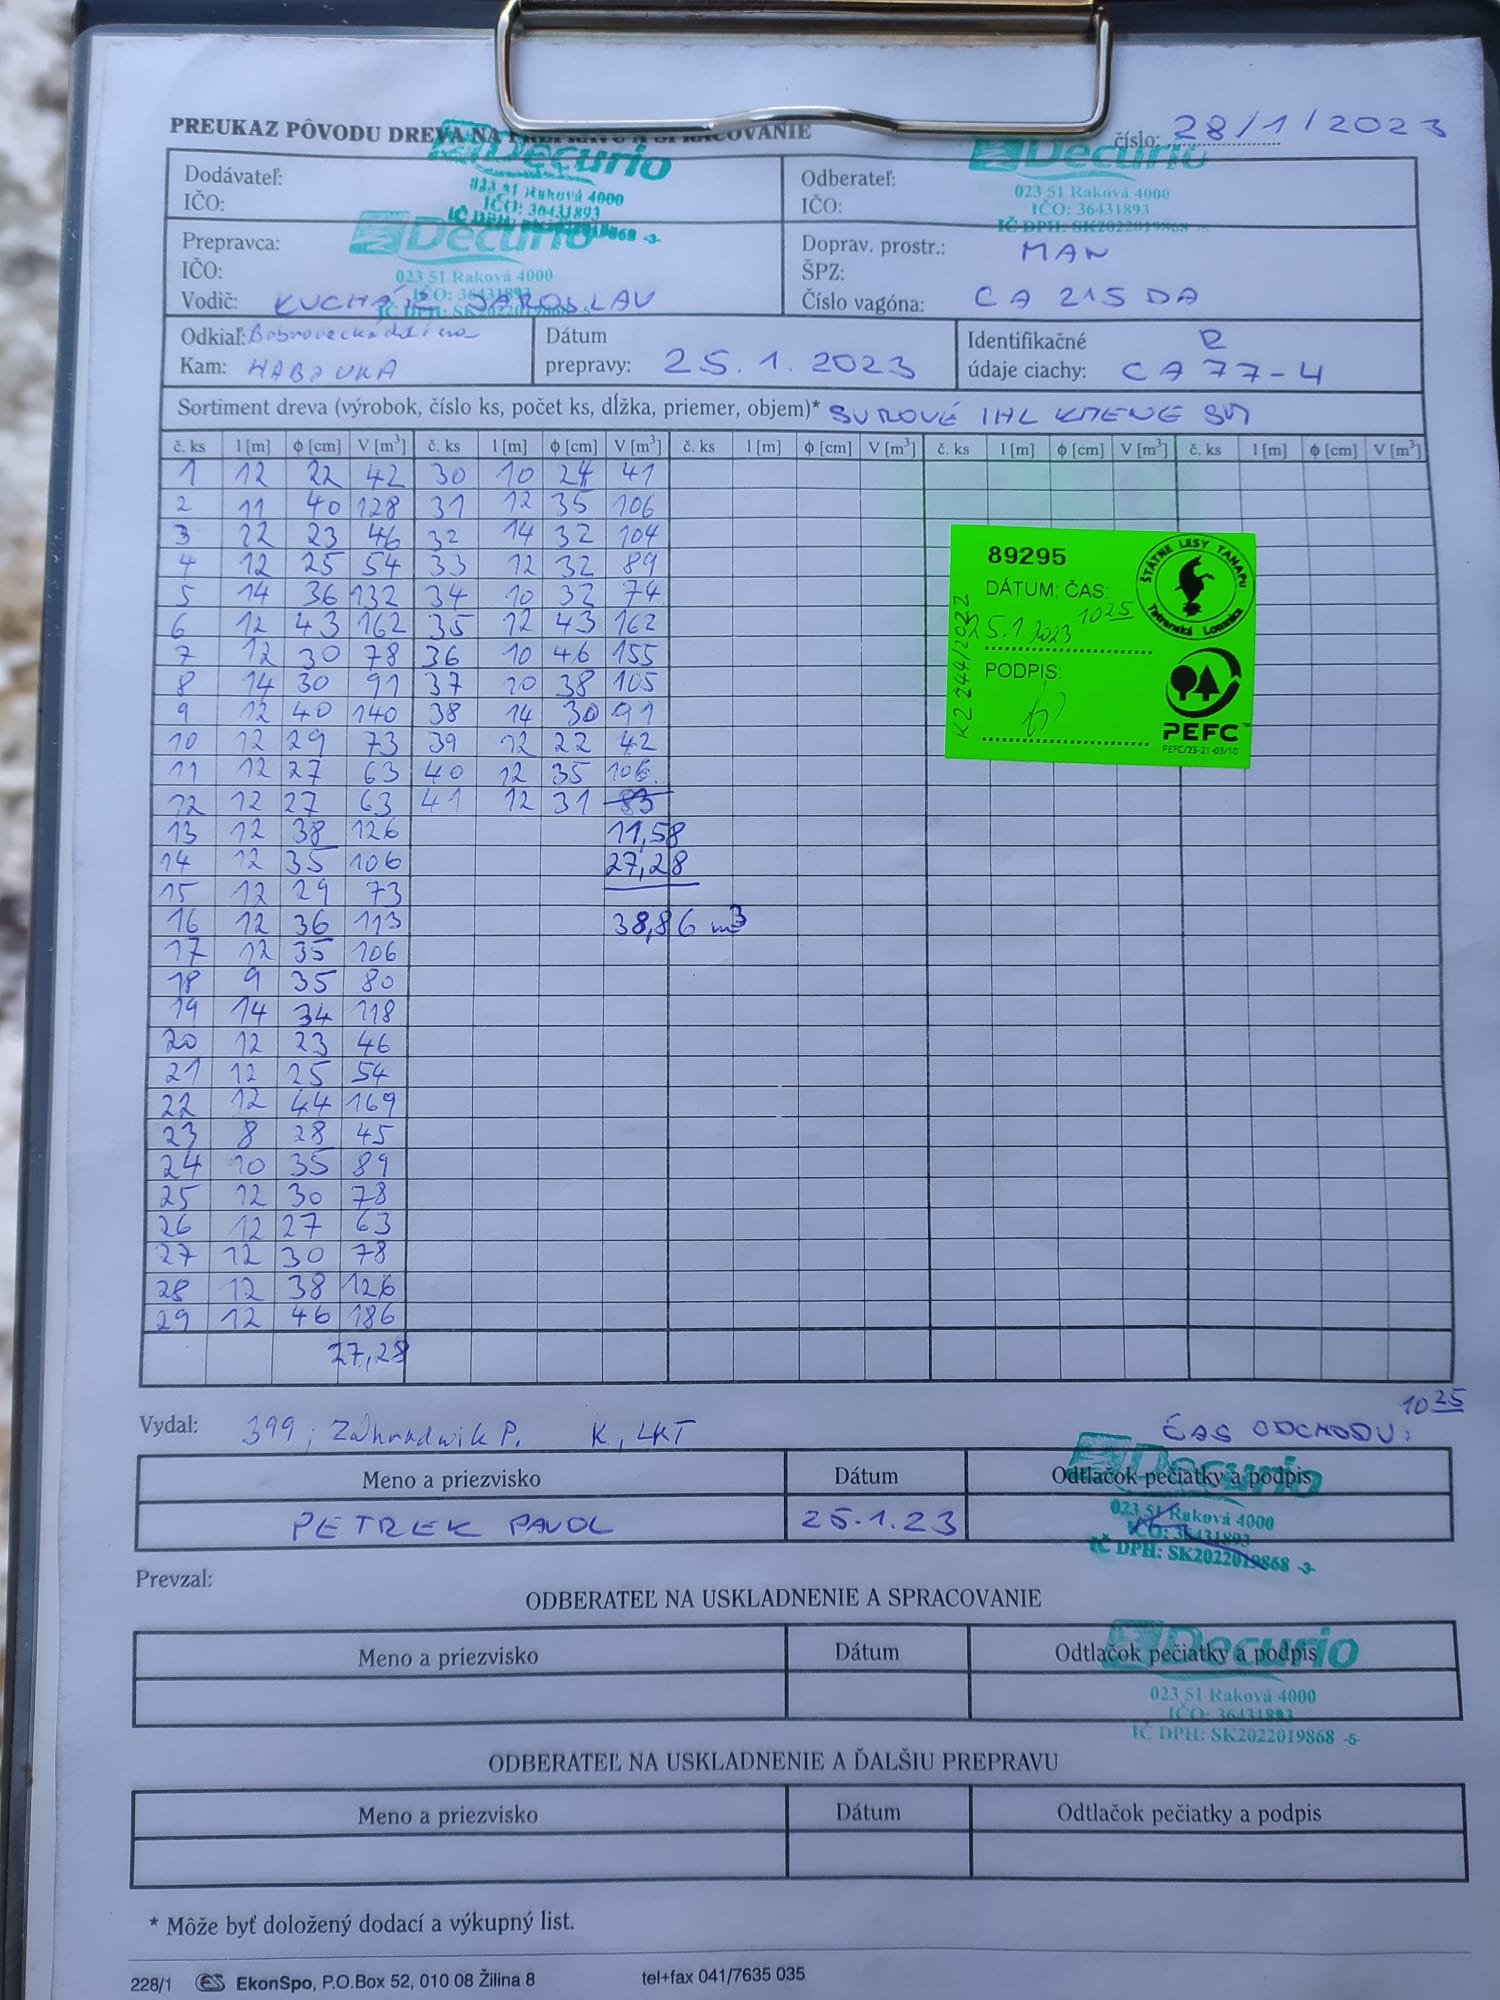 PREUKAZ PÔVODU DREVA NA PREPRAVU A SPRACOVANIE
číslo: 28/1/2023
Dodávateľ:
IČO:
Decurio
023 51 Raková 4000
IČO: 36431893
Odberateľ:
IČO:
Decurio
023 51 Raková 4000
IČO: 36431893
IČ DPH: SK2022019868 -5-
Prepravca:
IČO:
Vodič: KUCHÁR JAROSLAV
Decurio
023 51 Raková 4000
Doprav. prostr.: MAN
ŠPZ:
Číslo vagóna: CA 215 DA
Odkiaľ: Bobrovecká dolina
Kam: HABOVKA
Dátum
prepravy: 25.1.2023
Identifikačné
údaje ciachy: CA 77-4
Sortiment dreva (výrobok, číslo ks, počet ks, dĺžka, priemer, objem)* SUROVÉ IHL KMENE SM
č. ks l [m] ϕ [cm] V [m³] č. ks l [m] ϕ [cm] V [m³] č. ks l [m] ϕ [cm] V [m³] č. ks l [m] ϕ [cm] V [m³] č. ks l [m] ϕ [cm] V [m³]
1 12 22 42 30 10 24 41
2 11 40 128 31 12 35 106
3 12 23 46 32 14 32 104
4 12 25 54 33 12 32 89
5 14 36 132 34 10 32 74
6 12 43 162 35 12 43 162
7 12 30 78 36 10 46 155
8 14 30 91 37 10 38 105
9 12 40 140 38 14 30 91
10 12 29 73 39 12 22 42
11 12 27 63 40 12 35 106
12 12 27 63 41 12 31 83
13 12 38 126 11,58
14 12 35 106 27,28
15 12 29 73
16 12 36 113 38,86 m3
17 12 35 106
18 9 35 80
19 14 34 118
20 12 23 46
21 12 25 54
22 12 44 169
23 8 28 45
24 10 35 89
25 12 30 78
26 12 27 63
27 12 30 78
28 12 38 126
29 12 46 186
27,28
89295
DÁTUM; ČAS:
25.1.2023 10 25
PODPIS:
K2 244/2022
ŠTÁTNE LESY TANAPU
Tatranská Lomnica
PEFC™
PEFC/23-21-03/10
Vydal: 399; Záhradník P. K, LKT
10 25
ČAS ODCHODU:
Meno a priezvisko Dátum Odtlačok pečiatky a podpis
PETREK PAVOL 25.1.23
Decurio
023 51 Raková 4000
IČO: 36431893
IČ DPH: SK2022019868 -3-
Prevzal:
ODBERATEĽ NA USKLADNENIE A SPRACOVANIE
Meno a priezvisko Dátum Odtlačok pečiatky a podpis
Decurio
023 51 Raková 4000
IČO: 36431893
IČ DPH: SK2022019868 -5-
ODBERATEĽ NA USKLADNENIE A ĎALŠIU PREPRAVU
Meno a priezvisko Dátum Odtlačok pečiatky a podpis
* Môže byť doložený dodací a výkupný list.
228/1 ES EkonSpo, P.O.Box 52, 010 08 Žilina 8 tel+fax 041/7635 035